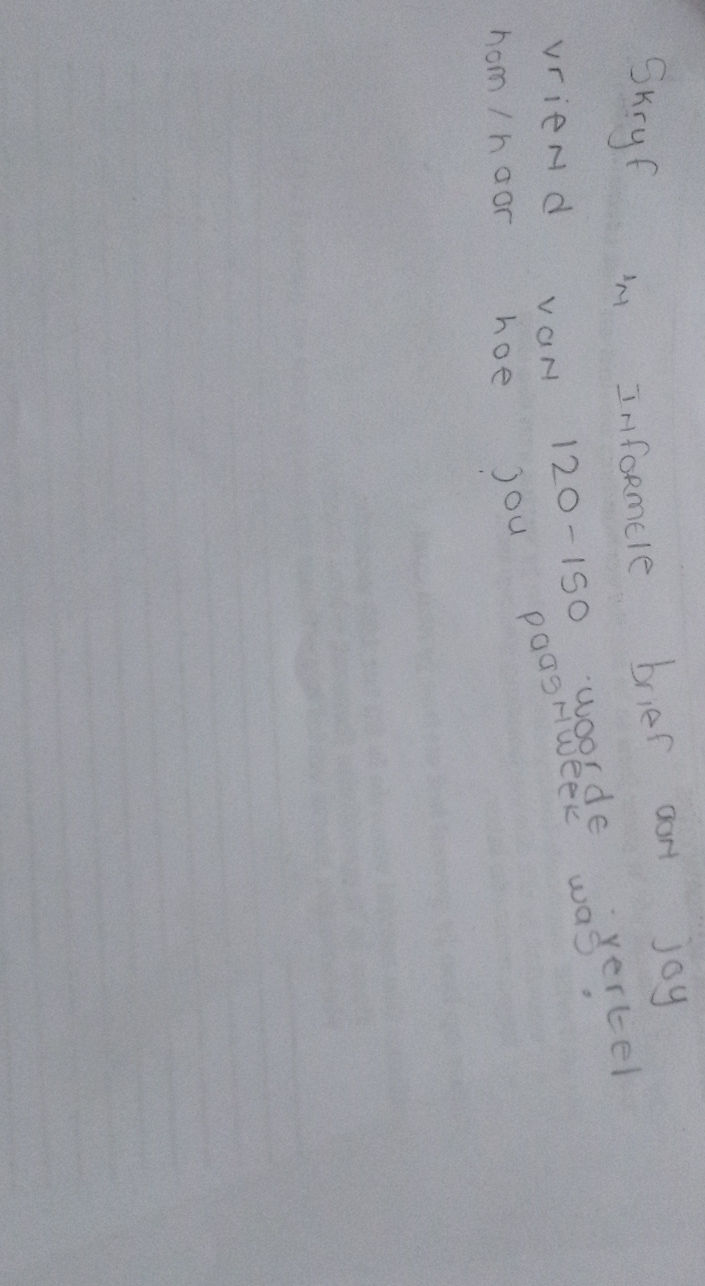 Skryf 'n Informele brief aan joy
vriend van 120-150 woorde vertel
hom/haar hoe jou paasnweek was.